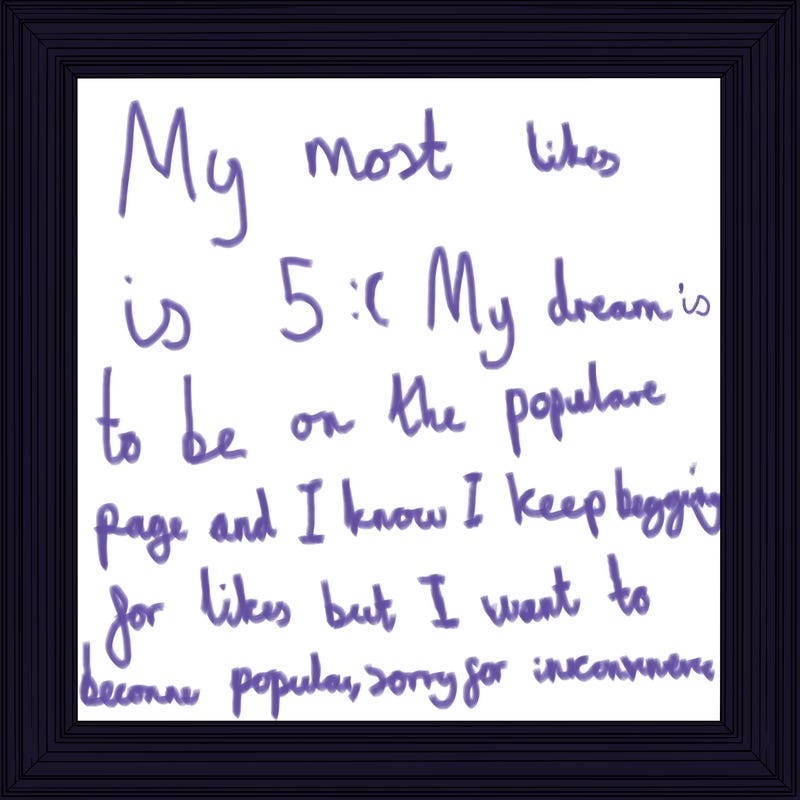 My most likes
is 5 :( My dream is
to be on the populare
page and I know I keep begging
for likes but I want to
become popular, sorry for